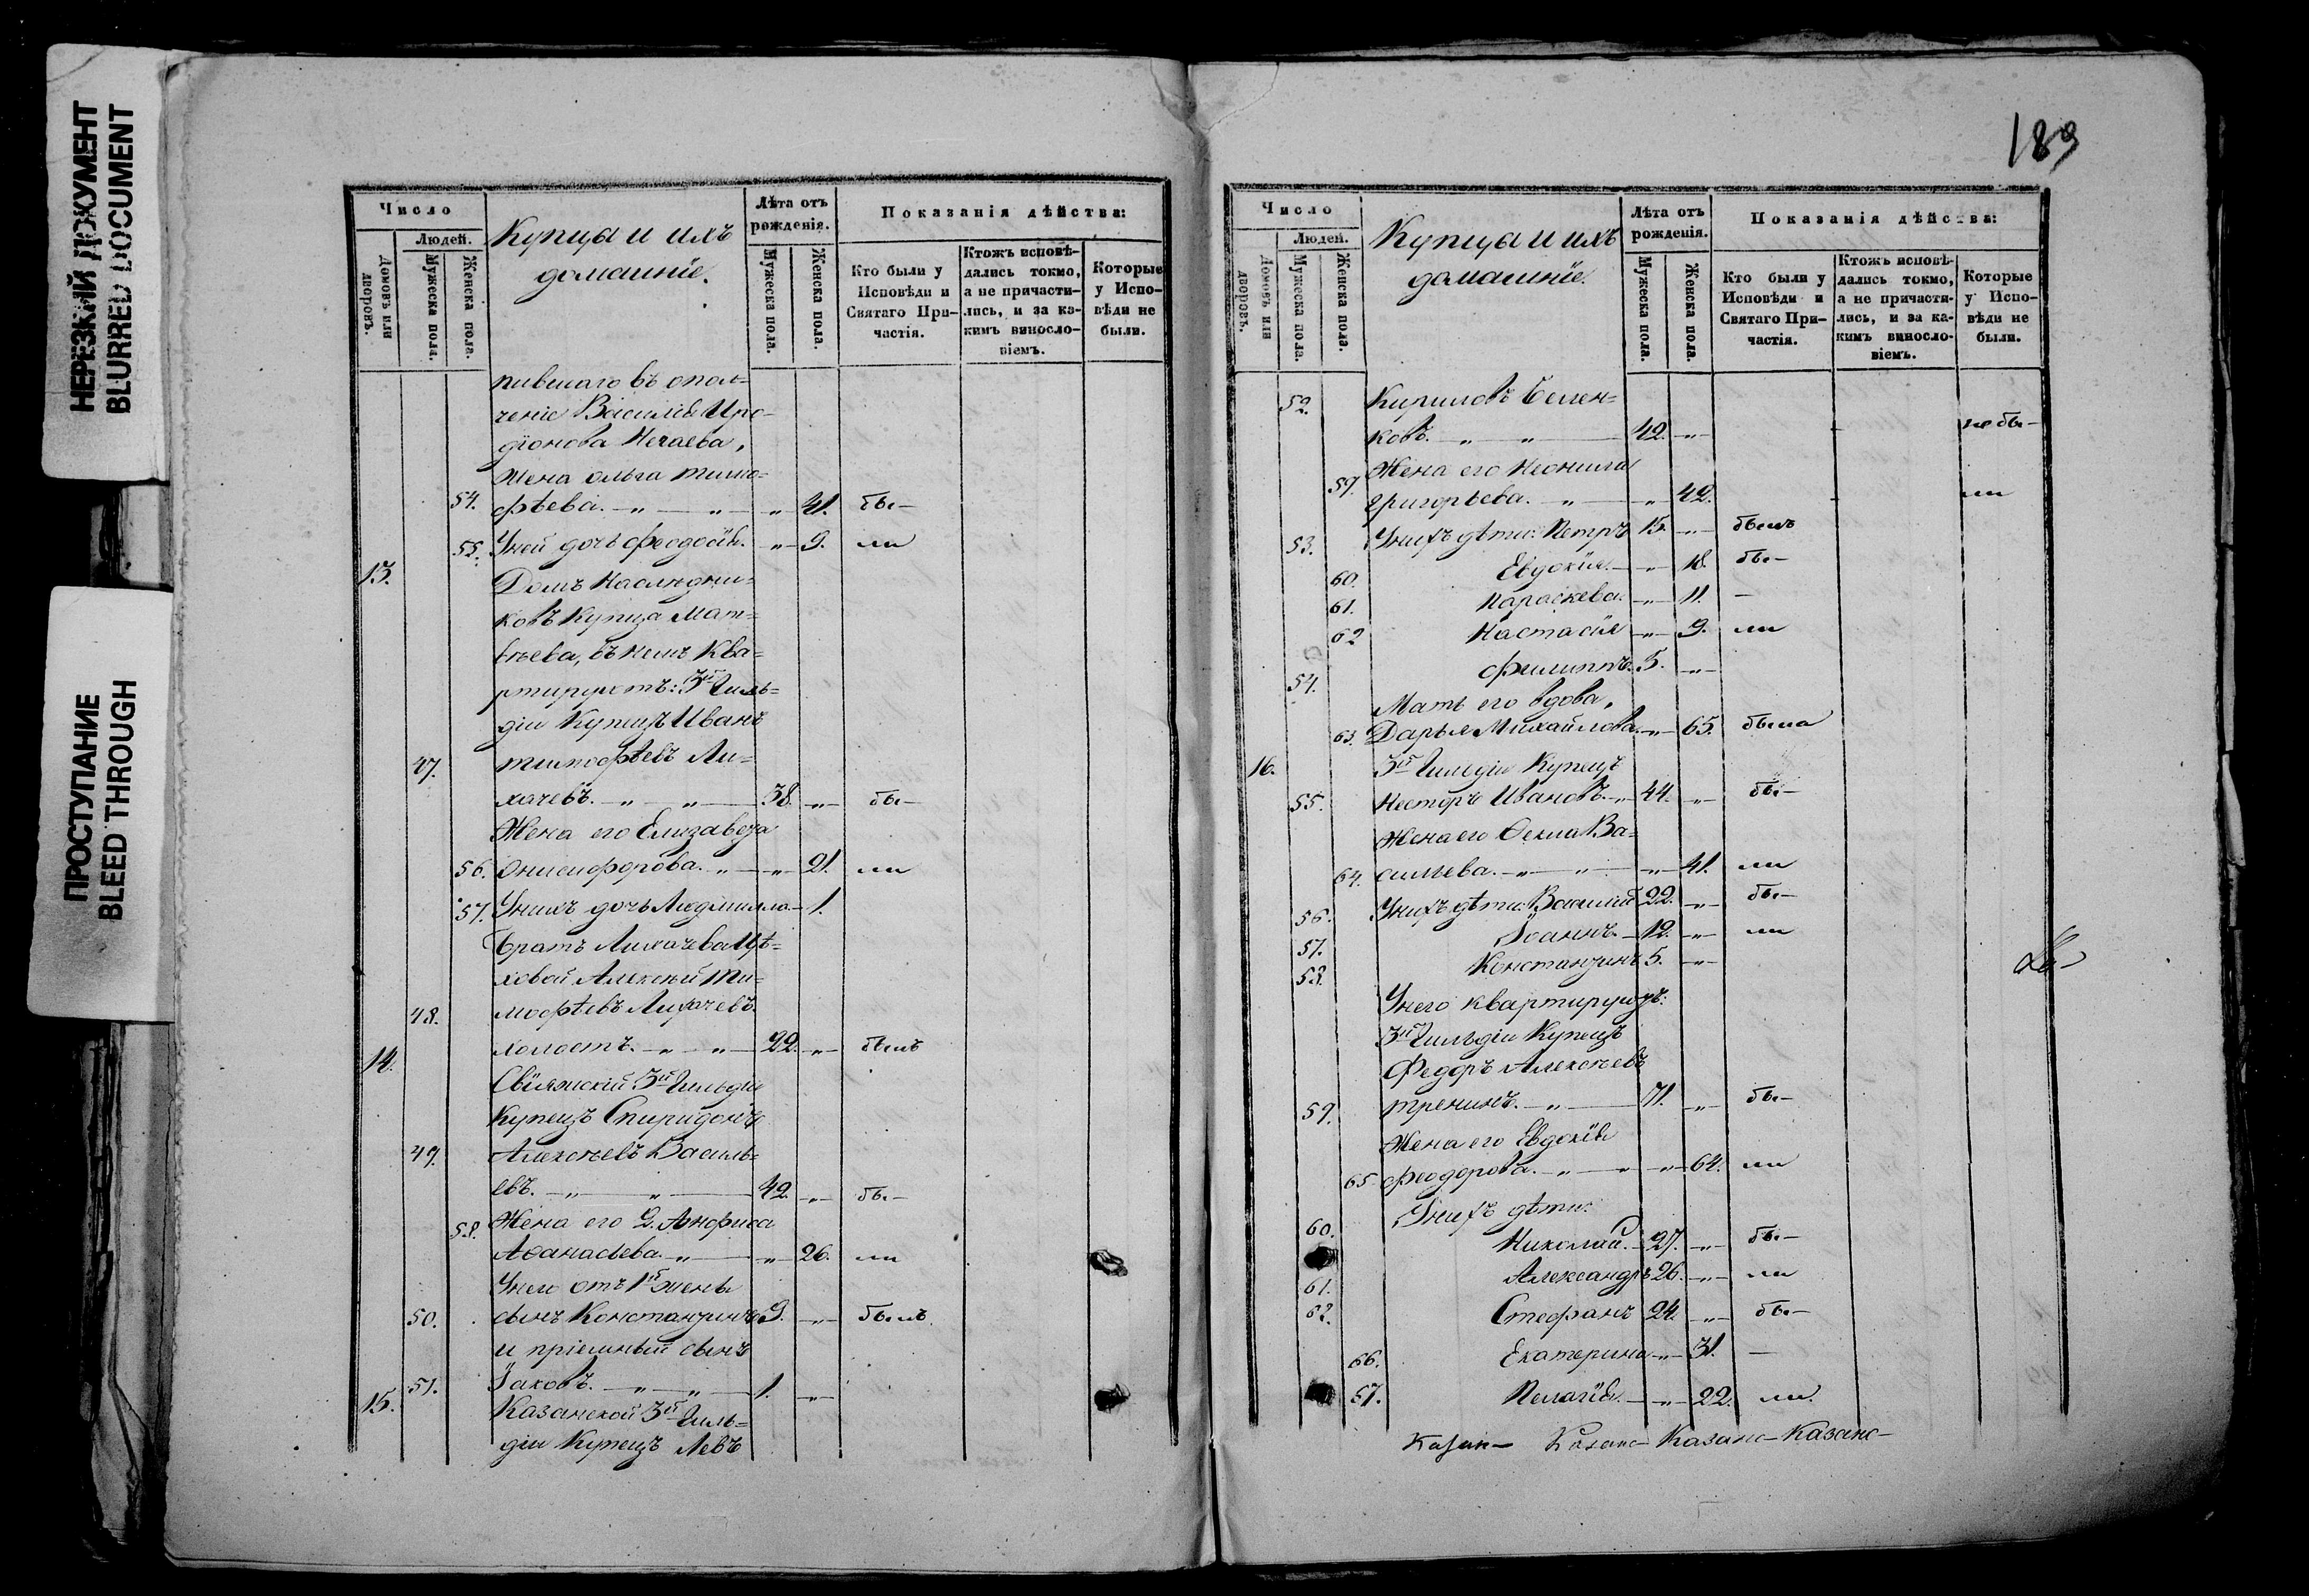 НЕРЕЗКИЙ ДОКУМЕНТ
BLURRED DOCUMENT
ПРОСТУПАНИЕ
BLEED THROUGH
Число
Людей.
Домовъ или дворовъ.
Мужеска пола.
Женска пола.
Купцы и ихъ
домашніе.
Лѣта отъ рожденія.
Мужеска пола.
Женска пола.
Показанія дѣйства:
Кто были у Исповѣди и Святаго При-частія.
Ктожъ исповѣ-дались токмо, а не причасти-лись, и за ка-кимъ виносло-віемъ.
Которые у Испо-вѣди не были.
пившаго въ опол=
ченіе Василія Иро-
діонова Нечаева,
Жена Ольга Тимо=
54. фѣева. — „ — „ — „ — 41. бы—
55. У ней дочь Феодосія. — „ — 9. ли
13. Домъ Наслѣдни=
ковъ Купца Мат=
вѣева, въ немъ Ква=
ртируютъ: 3й Гиль=
діи Купецъ Иванъ
47. Тимофѣевъ Ли=
хачевъ. — „ — „ — 38. — „ — бы—
Жена его Елизавета
56. Онисифорова. — „ — „ — 21. ли
57. У нихъ дочь Людмилла. — 1.
Братъ Лихачева Цѣ=
ховой Алексѣй Ти=
48. мофѣевъ Лихачевъ
холостъ. — „ — „ — 22. — „ — былъ
14. Свіяжскій 3й Гильдіи
Купецъ Спиридонъ
49. Алексѣевъ Василь=
евъ. — „ — „ — 42. — „ — бы—
58. Жена его 2. Анфиса
Аѳанасьева. — „ — „ — 26. ли
У него отъ 1й жены
50. сынъ Константинъ 9. — „ — былъ.
и пріемный сынъ
51. Іаковъ. — „ — „ — 1. — „ —
15. Казанской 3й Гиль=
діи Купецъ Левъ
189
Число
Людей.
Домовъ или дворовъ.
Мужеска пола.
Женска пола.
Купцы и ихъ
домашніе.
Лѣта отъ рожденія.
Мужеска пола.
Женска пола.
Показанія дѣйства:
Кто были у Исповѣди и Святаго При-частія.
Ктожъ исповѣ-дались токмо, а не причасти-лись, и за ка-кимъ виносло-віемъ.
Которые у Испо-вѣди не были.
52. Кириловъ Белен=
ковъ. — „ — „ — 42. — „ — не бы—
Жена его Неонила
59. Григорьева. — „ — „ — 42. ли
53. У нихъ дѣти: Петръ 15. — „ — былъ
60. Евдокія. — „ — 18. бы—
61. Параскева. — „ — 11. —
62 Настасія — „ — 9. ли
54. Филиппъ. 5. — „ —
Мать его вдова,
63. Дарья Михайлова. — „ — 65. была
16. 3й Гильдіи Купецъ
55. Несторъ Ивановъ. — „ 44. — „ — бы—
Жена его Ѳекла Ва=
64. сильева. — „ — „ — „ — 41. ли
56. У нихъ дѣти: Василій 22. — „ — бы—
57. Іоаннъ. — 12. — „ — ли
58. Константинъ 5. — „ —
У него квартируютъ:
3й Гильдіи Купецъ
Федоръ Алексѣевъ
59. Тренинъ. — „ — 71. — „ — бы—
Жена его Евдокія
65. Феодорова. — „ — „ — „ — 64. ли
У нихъ дѣти:
60. Николай. — 27. — „ — бы—
61. Александръ 26. — „ — ли
62. Стефанъ 24. — „ — бы—
66. Екатерина — „ — 31. —
67. Пелагія. — „ — 22. ли.
Казан— Казанс— Казанс— Казанс—